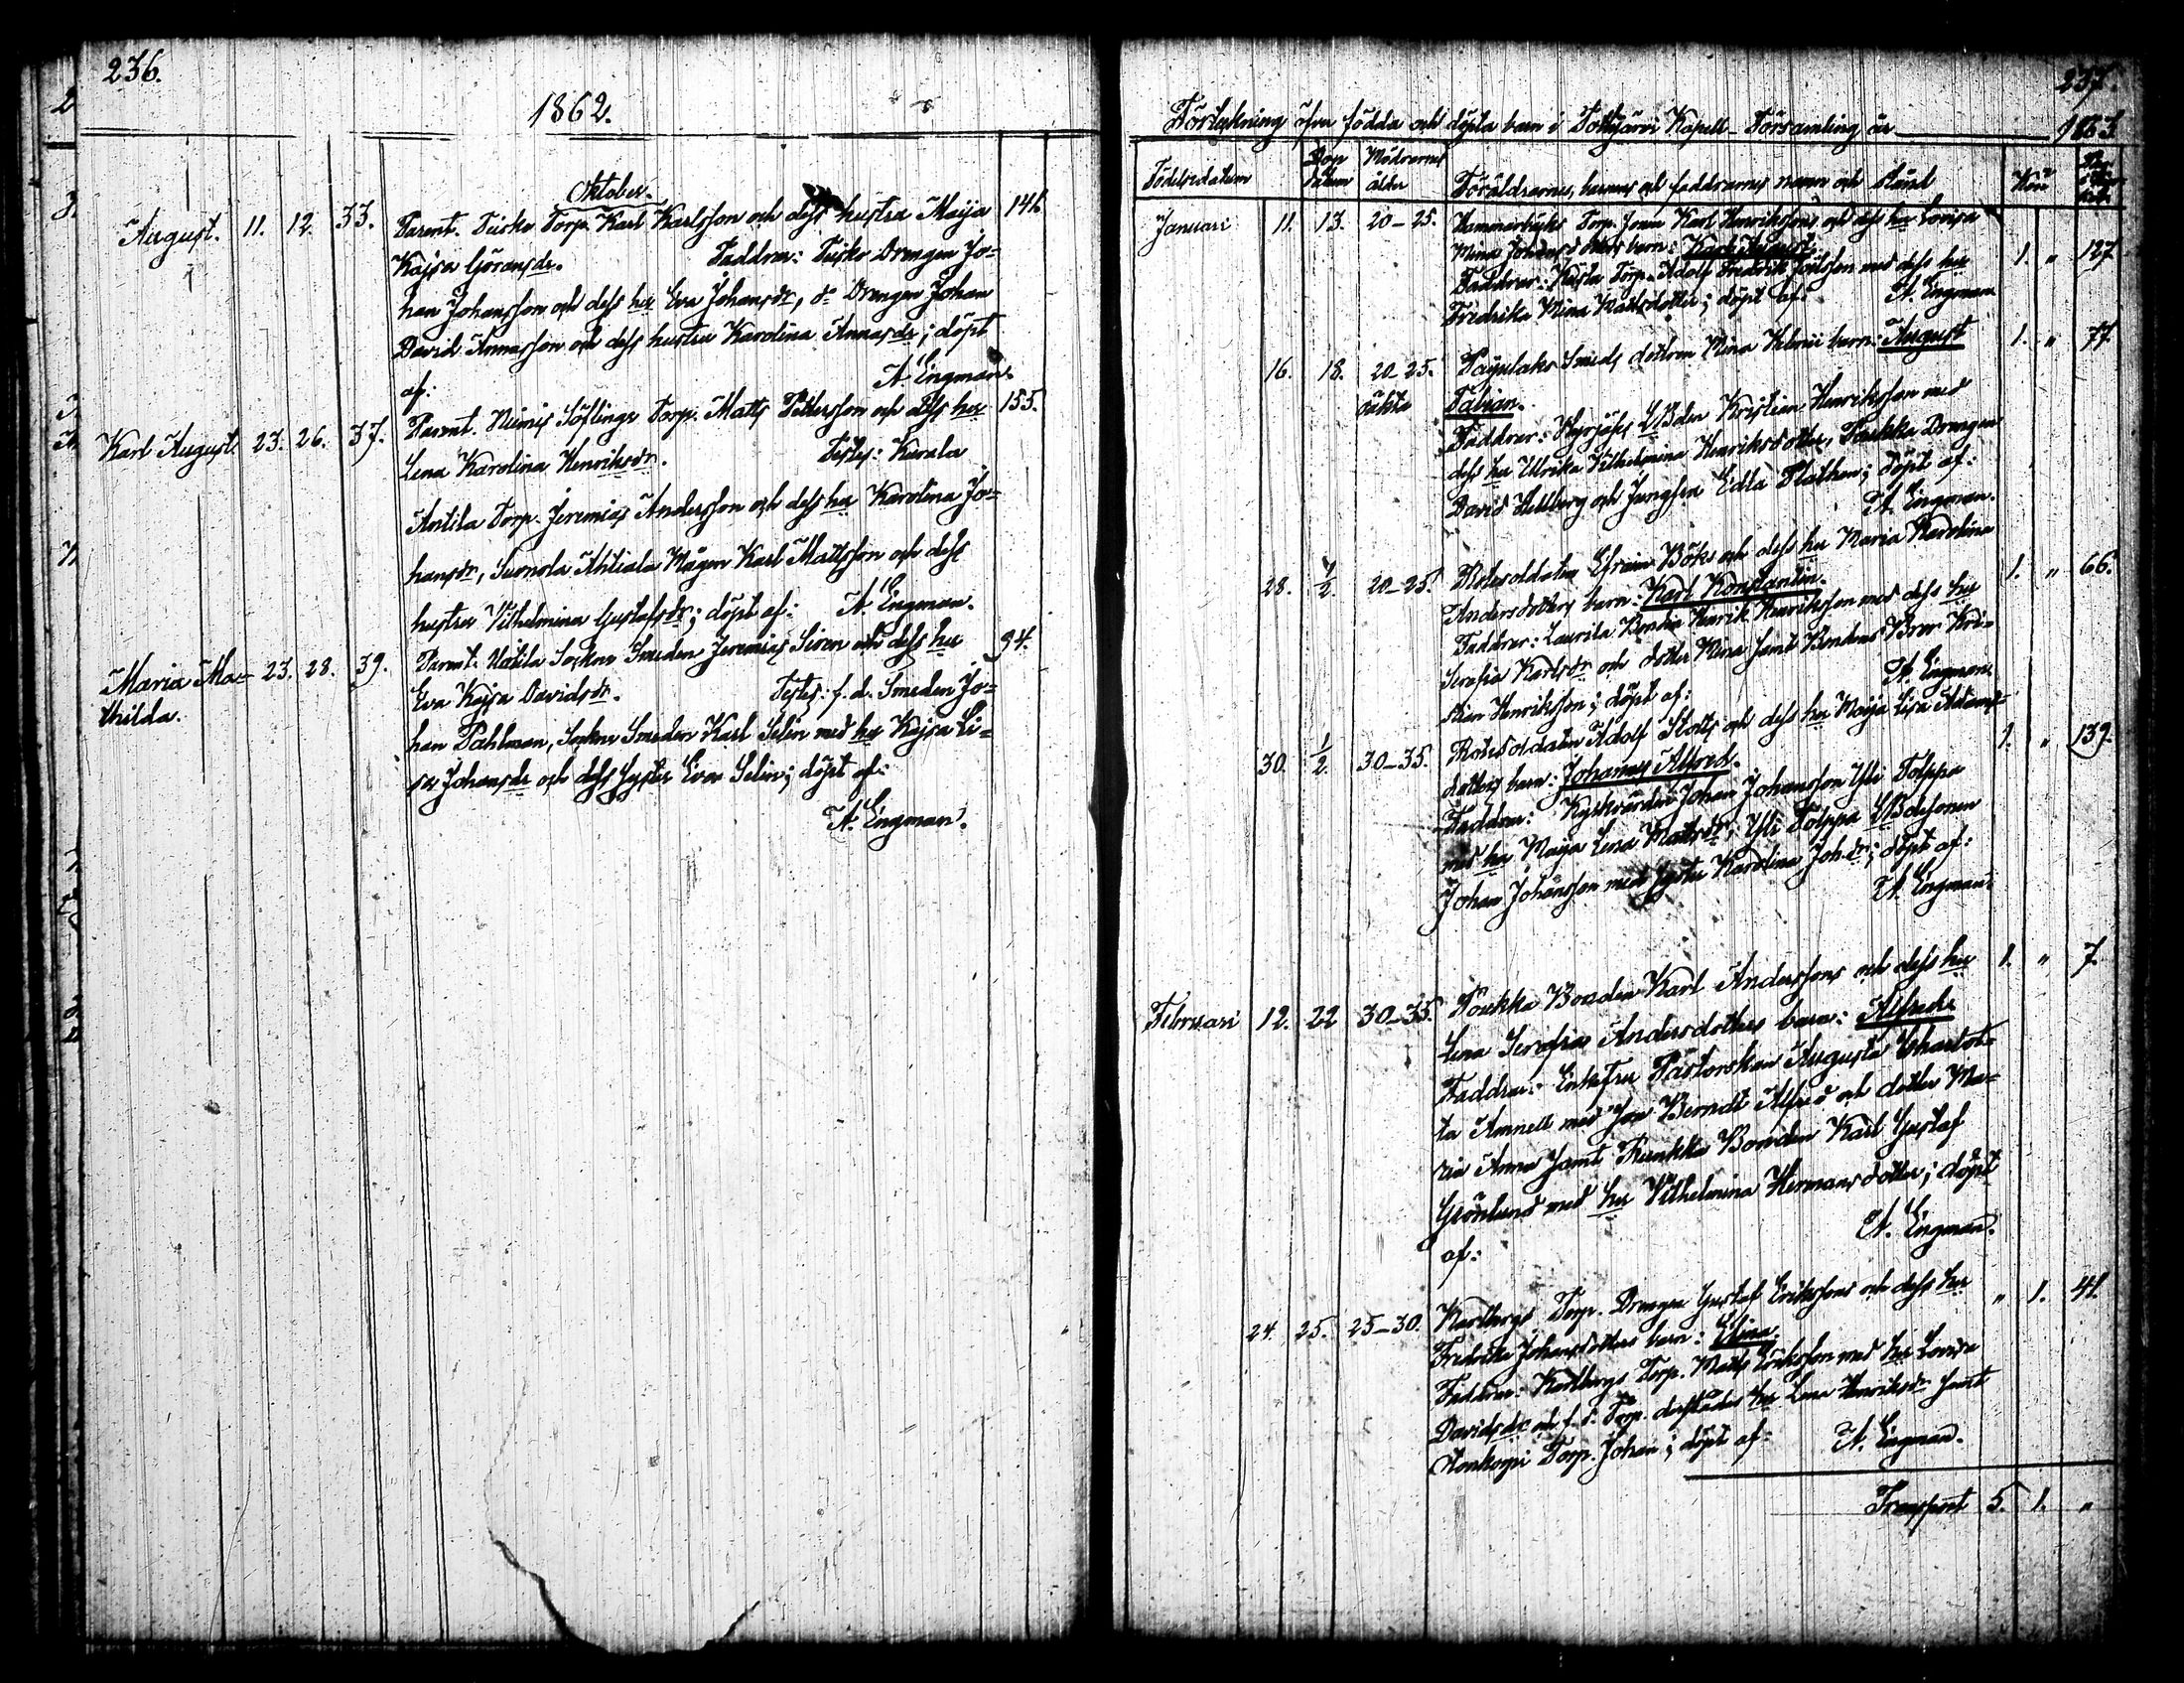 236.
1862.
Oktober.
August. 11. 12. 33. Parent. Tuisku Torp. Karl Karlsson och dess hustru Maija 141.
Kajsa Göransdr. Faddrar: Tuisku Drengen Jo-
han Johansson och dess hu Eva Johansdr, do Drengen Johan
David Annasson och dess hustru Karolina Annasdr; döpt
af: A. Engman.
Karl August. 23. 26. 37. Parent. Niemis Löflings Torp. Matts Pettersson och dess hu 155.
Lena Karolina Henriksdr. Testes: Karala
Antila Torp. Jeremias Andersson och dess hu Karolina Jo-
hansdr, Suonola Ahtiala Mågen Karl Mattsson och dess
hustru Vilhelmina Gustafsdr; döpt af: A. Engman.
Maria Ma- 23. 28. 39. Parent. Sockne Smeden Jeremias Siren och dess hu 94.
thilda. Eva Kajsa Davidsdr. Testes: f.d. Smeden Jo-
han Pahlman, Sockne Smeden Karl Selin med hu Kajsa Li-
sa Johansdr och dess Syster Eva Selin; döpt af:
A. Engman.
237.
Förtekning öfver födda och döpta barn i Kapell-Församling år 1863.
Födelsedatum Dop datum Mödrarnes ålder Föräldrarnes, barnens och faddrarnes namn och stånd Kön
Januari 11. 13. 20-25. Torp. Karl Henrikssons och dess hu Lovisa
Mina Johansdotters barn: Karl August. 1. " 127.
Faddrar: Torp. Adolf Fredrik med dess hu
Fredrika Mina Mattsdotter; döpt af: A. Engman.
16. 18. 20-25. Smeds dottren Mina barn: August 1. " 77.
oäkta Fabian.
Faddrar: Kristian Henriksson med
dess hu Ulrika Vilhelmina Henriksdotter, Drengen
David Hellberg och Jungfru Edla; döpt af:
A. Engman.
28. 4/2. 20-25. Rotesoldaten Efraim Böks och dess hu Maria Karolina
Andersdotters barn: Karl Konstantin. 1. " 66.
Faddrar: Laurila Bonden Henrik Henriksson med dess hu
Serafia Karlsdr och dotter Mina samt Bondens Bror Kri-
stian Henriksson; döpt af: A. Engman.
30. 1/2. 30-35. Rotesoldaten Adolf Stolts och dess hu Maija Lisa Adams-
dotters barn: Johannes Alfred. 1. " 139.
Faddrar: Kyrkvärden Johan Johansson Yli Tolppa
med hu Maija Lena Mattsdr; Yli Tolppa
Johan Johansson med syster Karolina Joh.dr; döpt af:
A. Engman.
Februari 12. 22. 30-35. Bonden Karl Anderssons och dess hu 1. " 7.
Lena Serafia Andersdotters barn: Alfred.
Faddrar: Enkefru Pastorskan Augusta Charlot-
ta Annell med son Berndt Alfred och dotter Ma-
ria Anna samt Bonden Karl Gustaf
Grönlund med hu Vilhelmina Hermansdotter; döpt
af: A. Engman.
24. 25. 25-30. Karlbergs Torp. Drengen Gustaf Erikssons och dess hu " 1. 41.
Fredrika Johansdotters barn: Elina.
Faddrar: Karlbergs Torp. Matts Eriksson med hu Lovisa
Davidsdr och f.d. Torp. derstädes hu Lena Henriksdr samt
Torp. Johan; döpt af: A. Engman.
Transport 5. 1. "